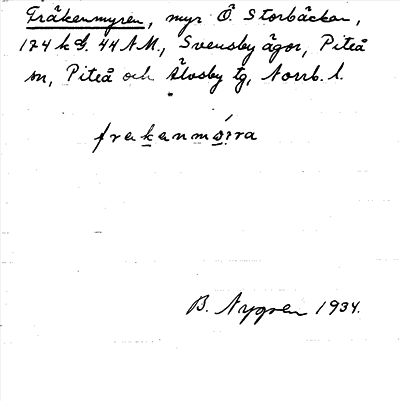 Fräkenmyren, myr Ö. Storbäcken,
174 k d. 44 A.M., Svensby ägor, Piteå
sn, Piteå och Älvsby tg, Norrb. l.
frakanmórra
B. Nygren 1934.